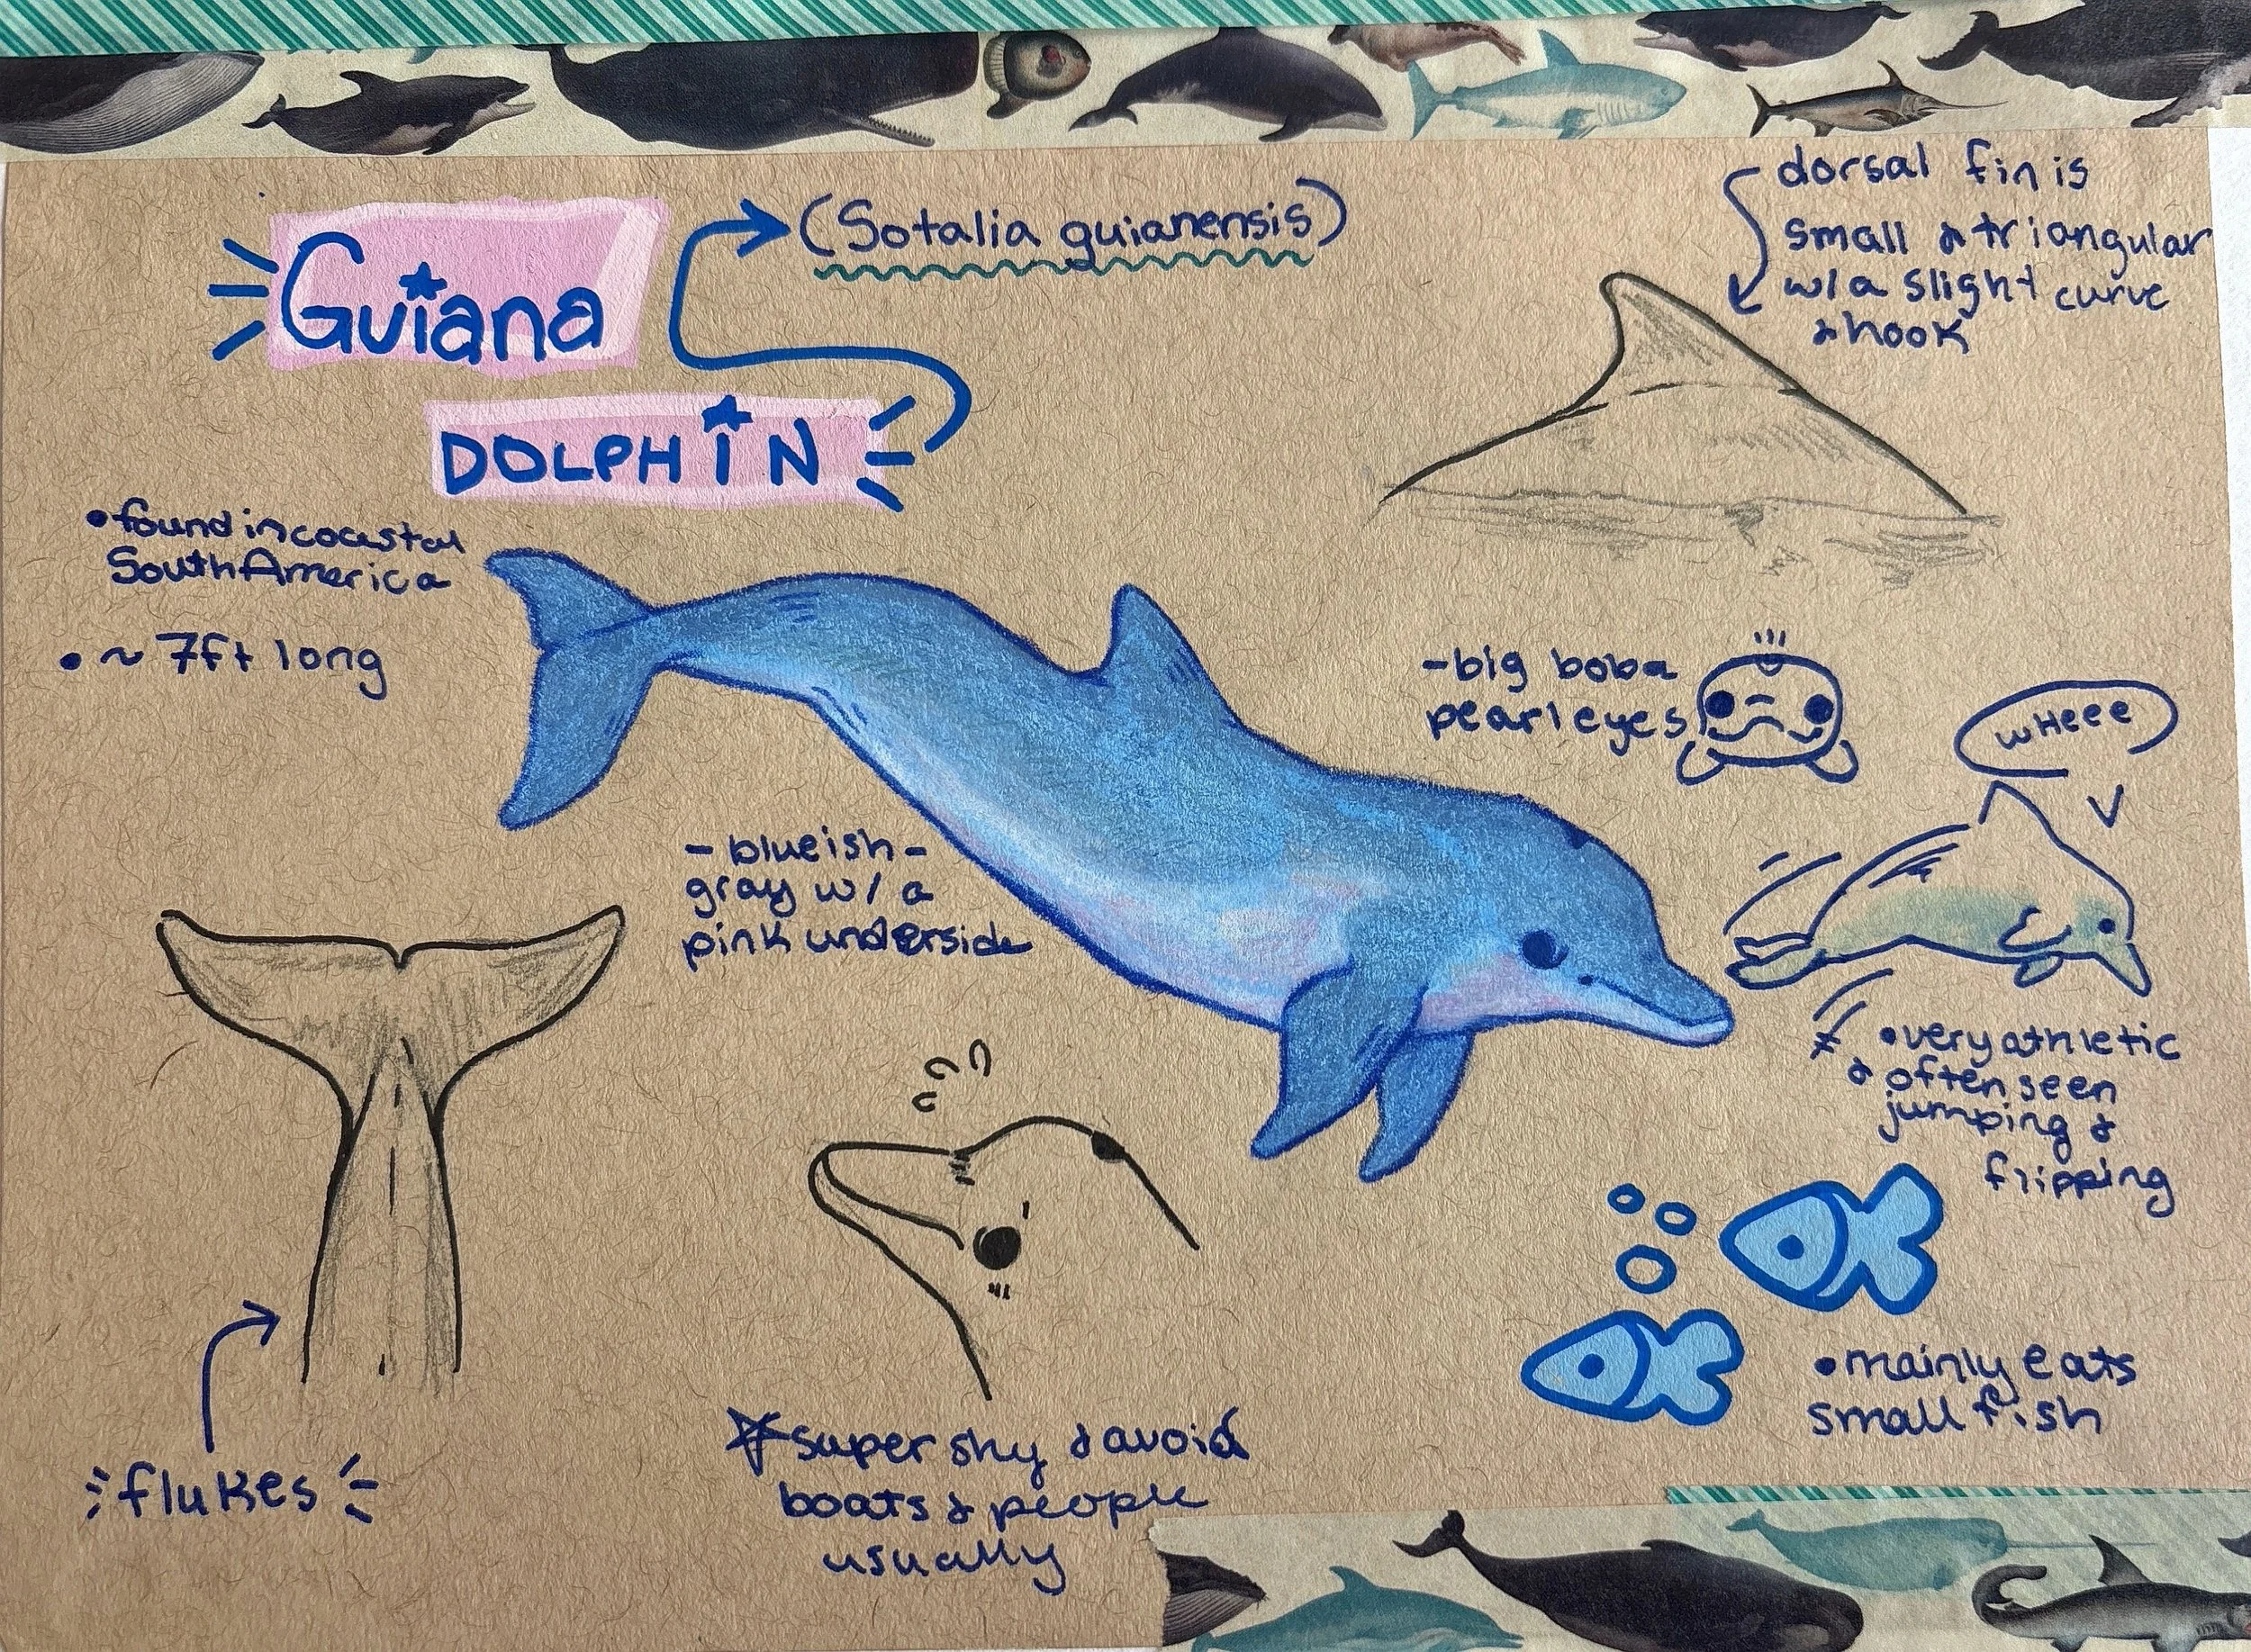 Guiana
DOLPHIN
(Sotalia guianensis)
dorsal fin is
small & triangular
w/a slight curve
& hook
• found in coastal
South America
• ~ 7ft long
- big boba
pearl eyes
wHeee
- blueish-
gray w/ a
pink underside
• very athletic
& often seen
jumping &
flipping
• mainly eats
small fish
flukes
super shy & avoid
boats & people
usually